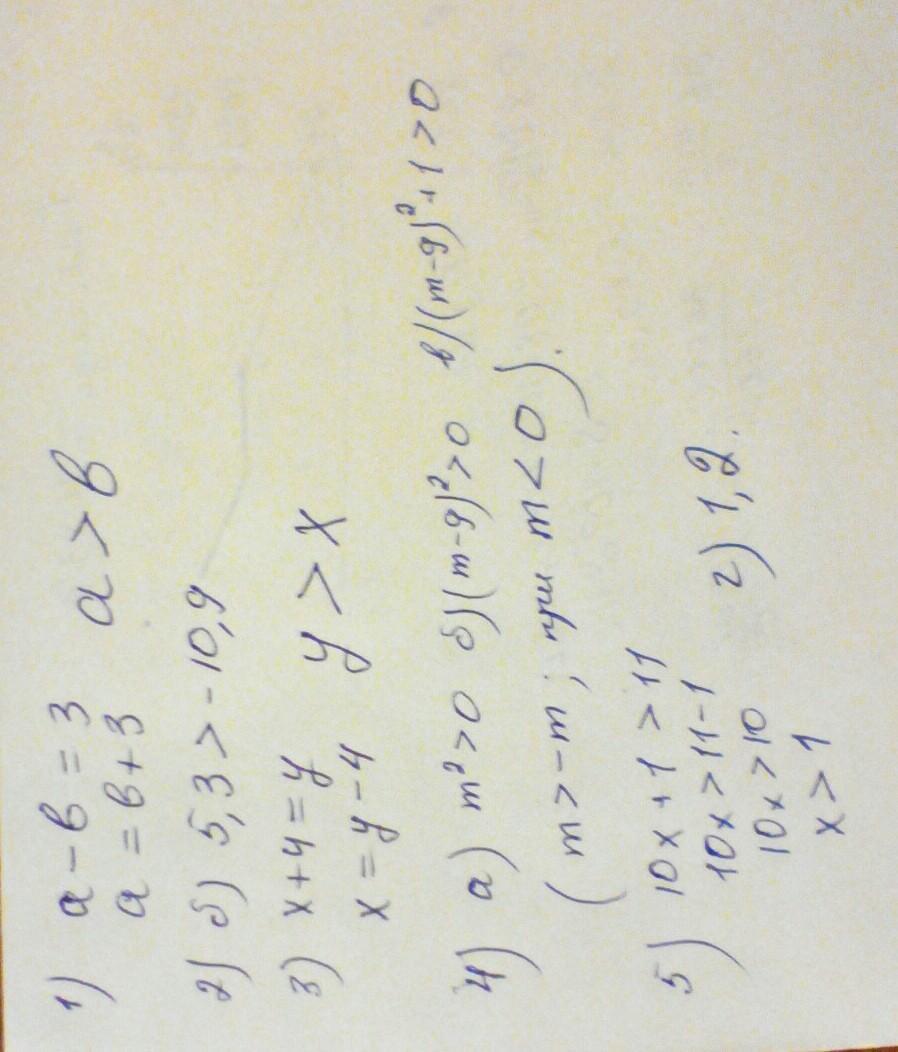 1) a - b = 3 a > b
a = b + 3
2) б) 5,3 > -10,9
3) x + 4 = y y > x
x = y - 4
4) а) m² > 0 б) (m-9)² > 0 в) (m-9)² + 1 > 0
(m > -m; при m < 0).
5) 10x + 1 > 11
10x > 11 - 1 г) 1,2.
10x > 10
x > 1